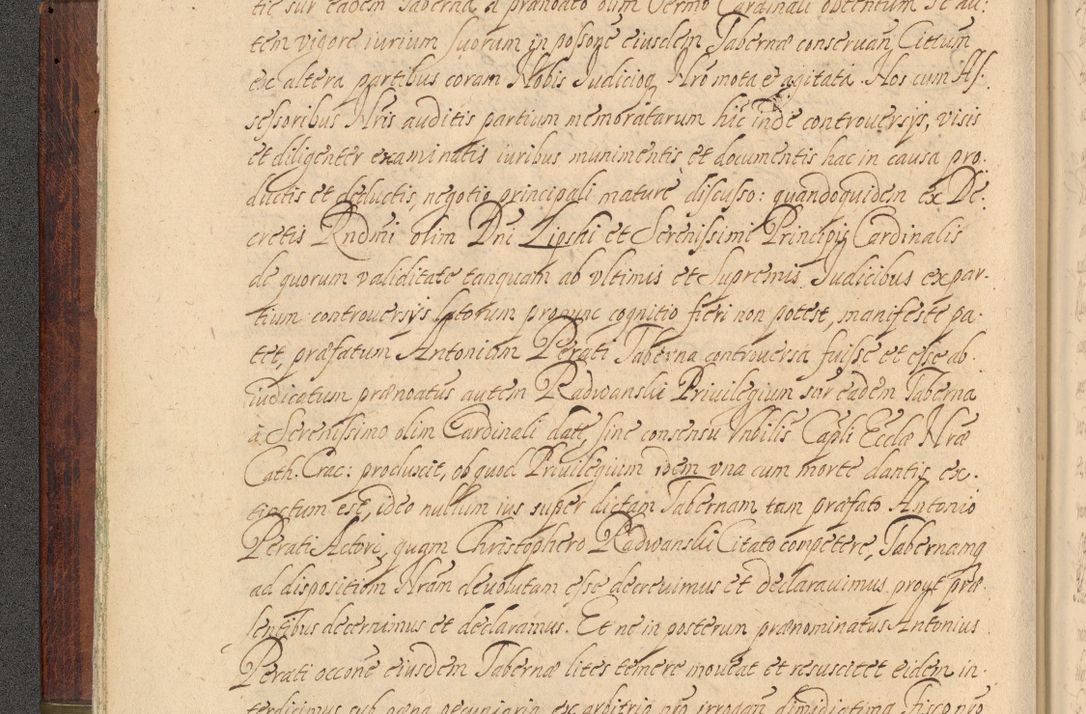 tie sur eadem Taberna a prænoato olim Vermo Cardinali obtentum se au:
tem vigore iurium suorum in posśone eiusdem Tabernæ conseruan Citum
ex altera partibus coram Nobis Judicioq Nro mota et agitata. Nos cum As.
sessoribus Nris auditis partium memoratarum hic inde controuersys, visis
et diligenter examinatis iuribus munimentis et documentis hac in causa pro.
ductis et deductis, negotio principali mature discusso: quandoquidem ex De.
cretis Rndmi olim Dni Lipski et Serenissimi Principis Cardinalis
de quorum validitate tanquam ab vltimis et Supremis Judicibus ex par.
tium controuersys latorum pronunc cognitio fieri non potest, manifeste pa.
tet, præfatum Antonium Perati Taberna controuersa fuisse et esse ab.
iudicatum prænoatus autem Radwanski Priuilegium sur eadem Taberna
à Serenissimo olim Cardinali date, sine consensu Vnbilis Capli Eccla Nræ
Cath. Crac: produxit, ob quod Priuilegium idem vna cum morte dantis ex.
tinctum est, ideo nullum ius super dictam Tabernam tam præfato Antonio
Perati Actori, quam Christophero Radwanski Citato competere, Tabernamq
ad dispositiom Nram deuolutam esse decreuimus et declarauimus prout præ.
sentibus decernimus et declaramus. Et ne in posterum prænominatus Antonius
Perati occone eiusdem Tabernæ lites temere moueat et resuscitet eidem in.
terdicimus sub pæna pecuniaria ex arbitrio nro irrogan dimidiatima Fisco pro